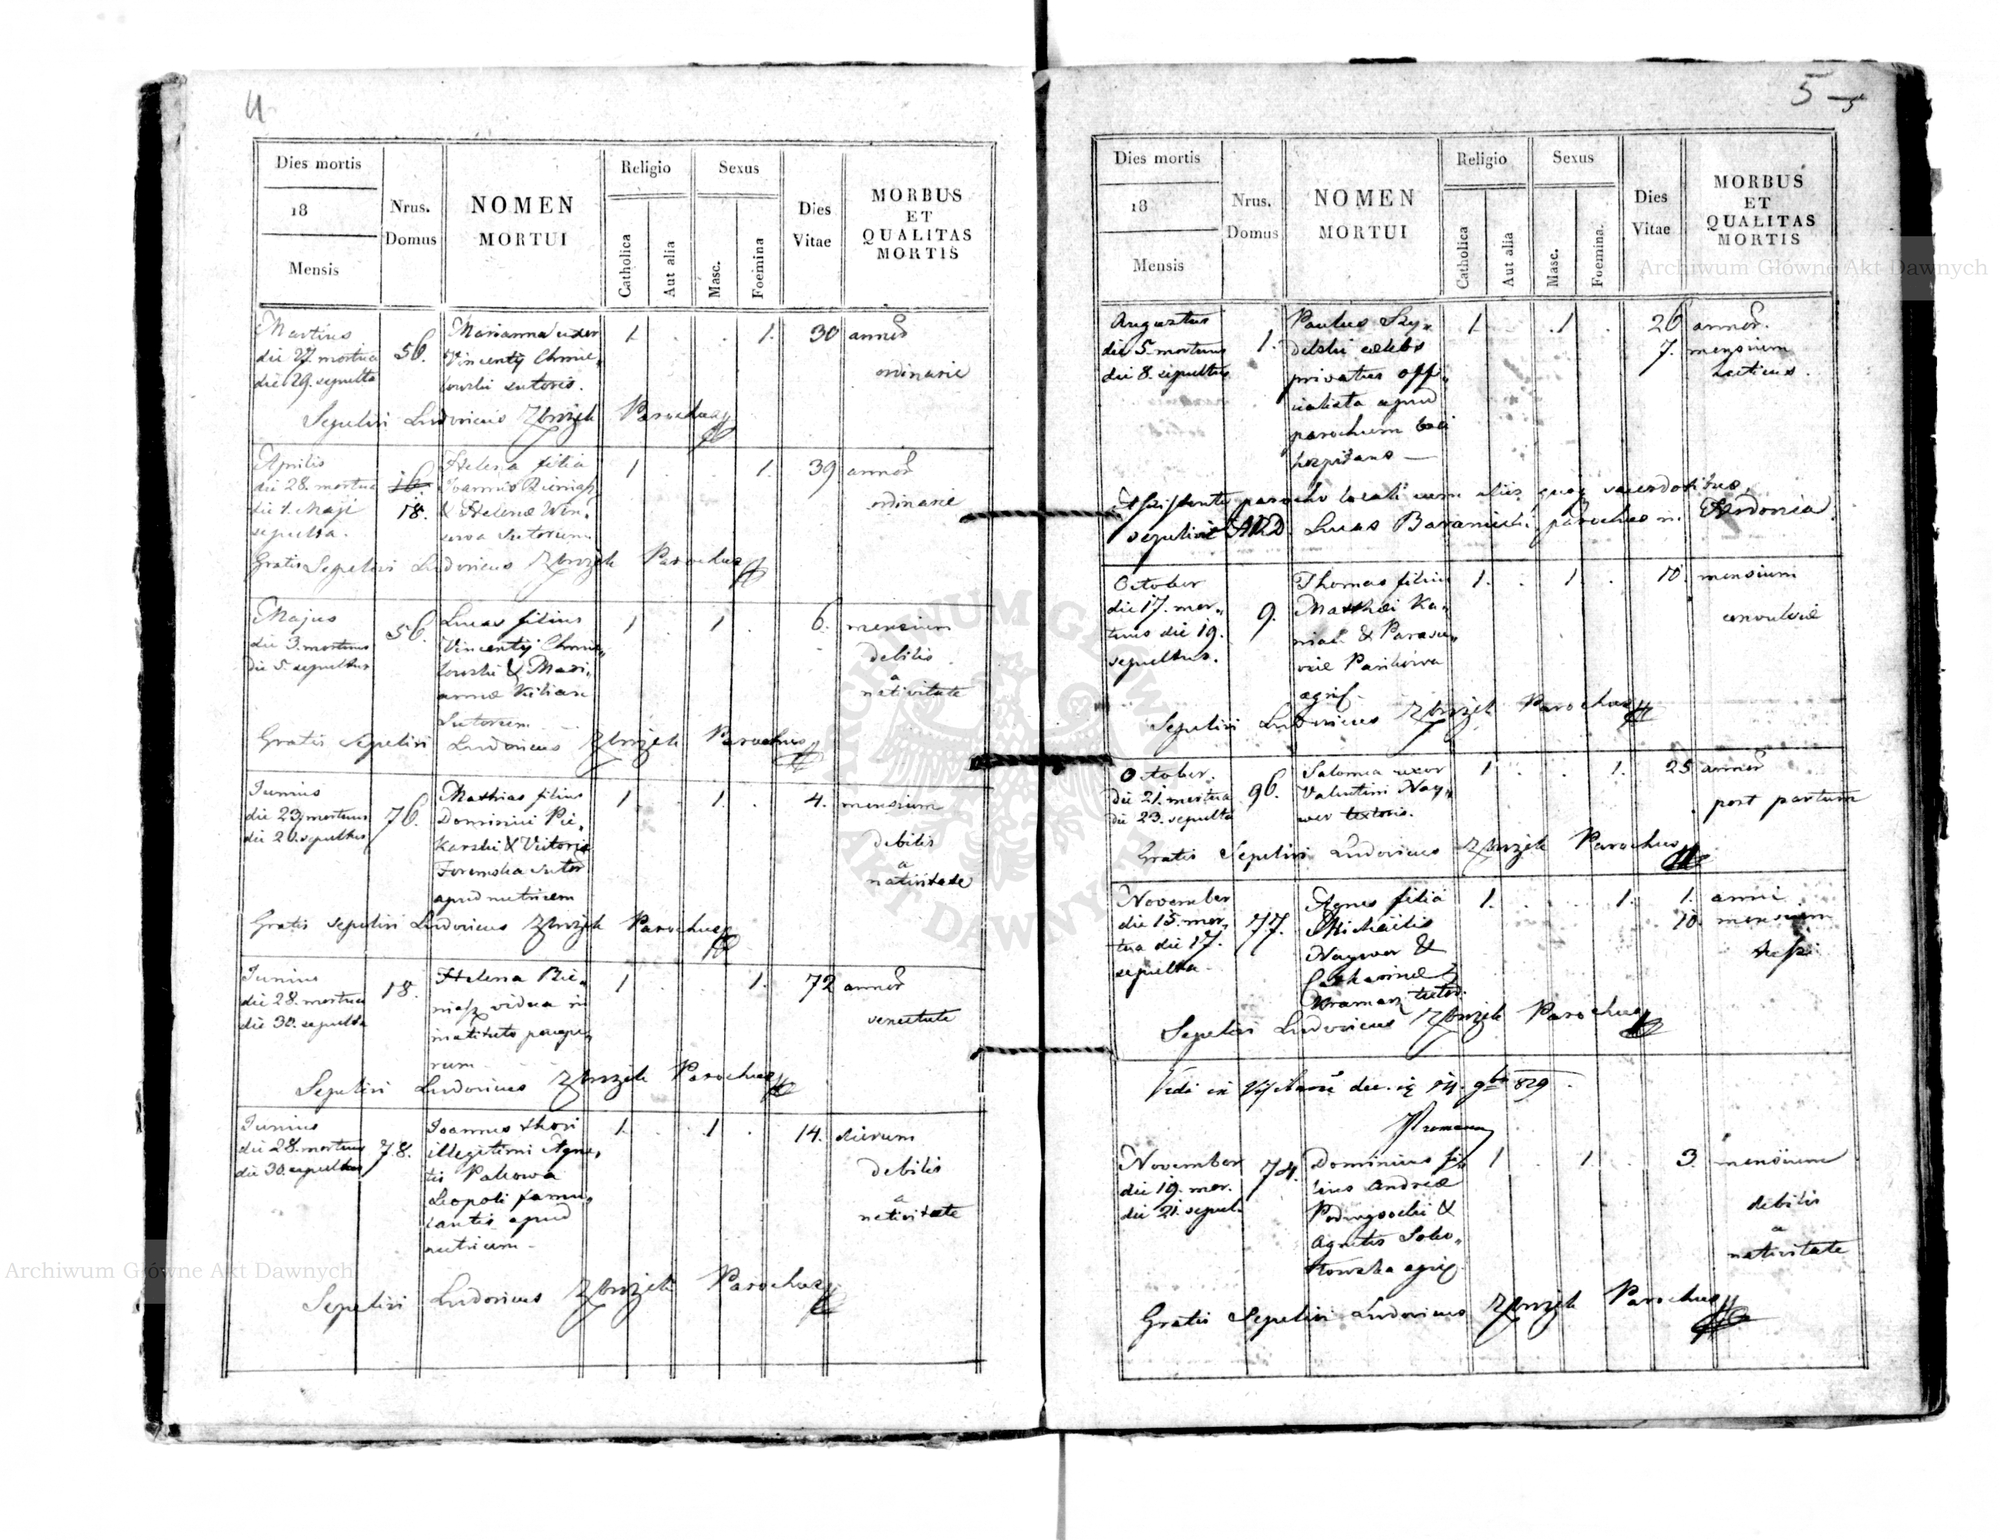 4
Dies mortis
18
Mensis
Nrus.
Domus
NOMEN
MORTUI
Religio
Catholica
Aut alia
Sexus
Masc.
Foemina
Dies
Vitae
MORBUS
ET
QUALITAS
MORTIS
Martius
die 27. mortua
die 29. sepulta
56.
Marianna uxor
Vincentij Chmie„
lowski sutoris.
1 . . 1. 30 annor
ordinarie
Sepelivi Ludovicus Parochus
Aprilis
die 28. mortua
die 1. Maji
sepulta.
16.
18.
Helena filia
Joannis Bieniasz
& Helenæ
sutorum
1 . . 1. 39 annor
ordinarie
Gratis Sepelivi Ludovicus Parochus
Majus
die 3. mortuus
die 5. sepultus
56.
Lucas filius
Vincentij Chmie„
lowski & Mari„
annæ Kilian
Sutorum
1 . 1 . 6. mensium
debilis
a
nativitate
Gratis Sepelivi Ludovicus Parochus
Junius
die 23. mortuus
die 26. sepultus
76.
Mathias filius
Dominici Pie„
karski & Victoriæ
Foremska sutor
apud nutricem
1 . 1. . 4. mensium
debilis
a
nativitate
Gratis sepelivi Ludovicus Parochus
Junius
die 28. mortua
die 30. sepulta
18.
Helena Bie„
niasz vidua in
instituto paupe„
rum
1 . . 1. 72 annor
senectute
Sepelivi Ludovicus Parochus
Junius
die 28. mortuus
die 30. sepultus
78.
Joannes thori
illegitimi Agne„
tis Palkowa
Leopoli famu„
lantis apud
nutricem
1. . 1 . 14. dierum
debilis
a
nativitate
Sepelivi Ludovicus Parochus
5
Dies mortis
18
Mensis
Nrus.
Domus
NOMEN
MORTUI
Religio
Catholica
Aut alia
Sexus
Masc.
Foemina.
Dies
Vitae
MORBUS
ET
QUALITAS
MORTIS
Augustus
die 5. mortuus
die 8. sepultus
1.
Paulus Szy„
delski cælebs
privatus offi„
cialista apud
parochum loci
hospitans —
1 . .1 . 26 annor.
7. mensium
hecticus.
Assistente parocho locali cum aliis sacerdotibus
sepelivit ARD. Lucas parochus in
October
die 17. mor„
tuus die 19.
sepultus.
9.
Thomas filius
Matthæi Ka„
&
agric.
1. . 1 . 10. mensium
convulsiæ
Sepelivi Ludovicus Parochus
October.
die 21. mortua
die 23. sepulta
96.
Salomea uxor
Valentini Nay„
wer textoris.
1 . . 1. 25 annor
post partum
Gratis Sepelivi Ludovicus Parochus
November
die 15. mor„
tua die 17.
sepulta
77.
Agnes filia
Michaëlis
Naywer &
Catharinæ
Kramarz textor.
1. . . 1. 1. anni
10. mensium
tussi
Sepelivi Ludovicus Parochus
November
die 19. mor.
die 21. sepul.
74.
Dominicus fi„
lius Andreæ
Podwysocki &
Agnetis Soko„
łowska agric.
1 . 1 . 3. mensium
debilis
a
nativitate
Gratis Sepelivi Ludovicus Parochus
Archiwum Główne Akt Dawnych
Archiwum Główne Akt Dawnych
ARCHIWUM GŁÓWNE AKT DAWNYCH